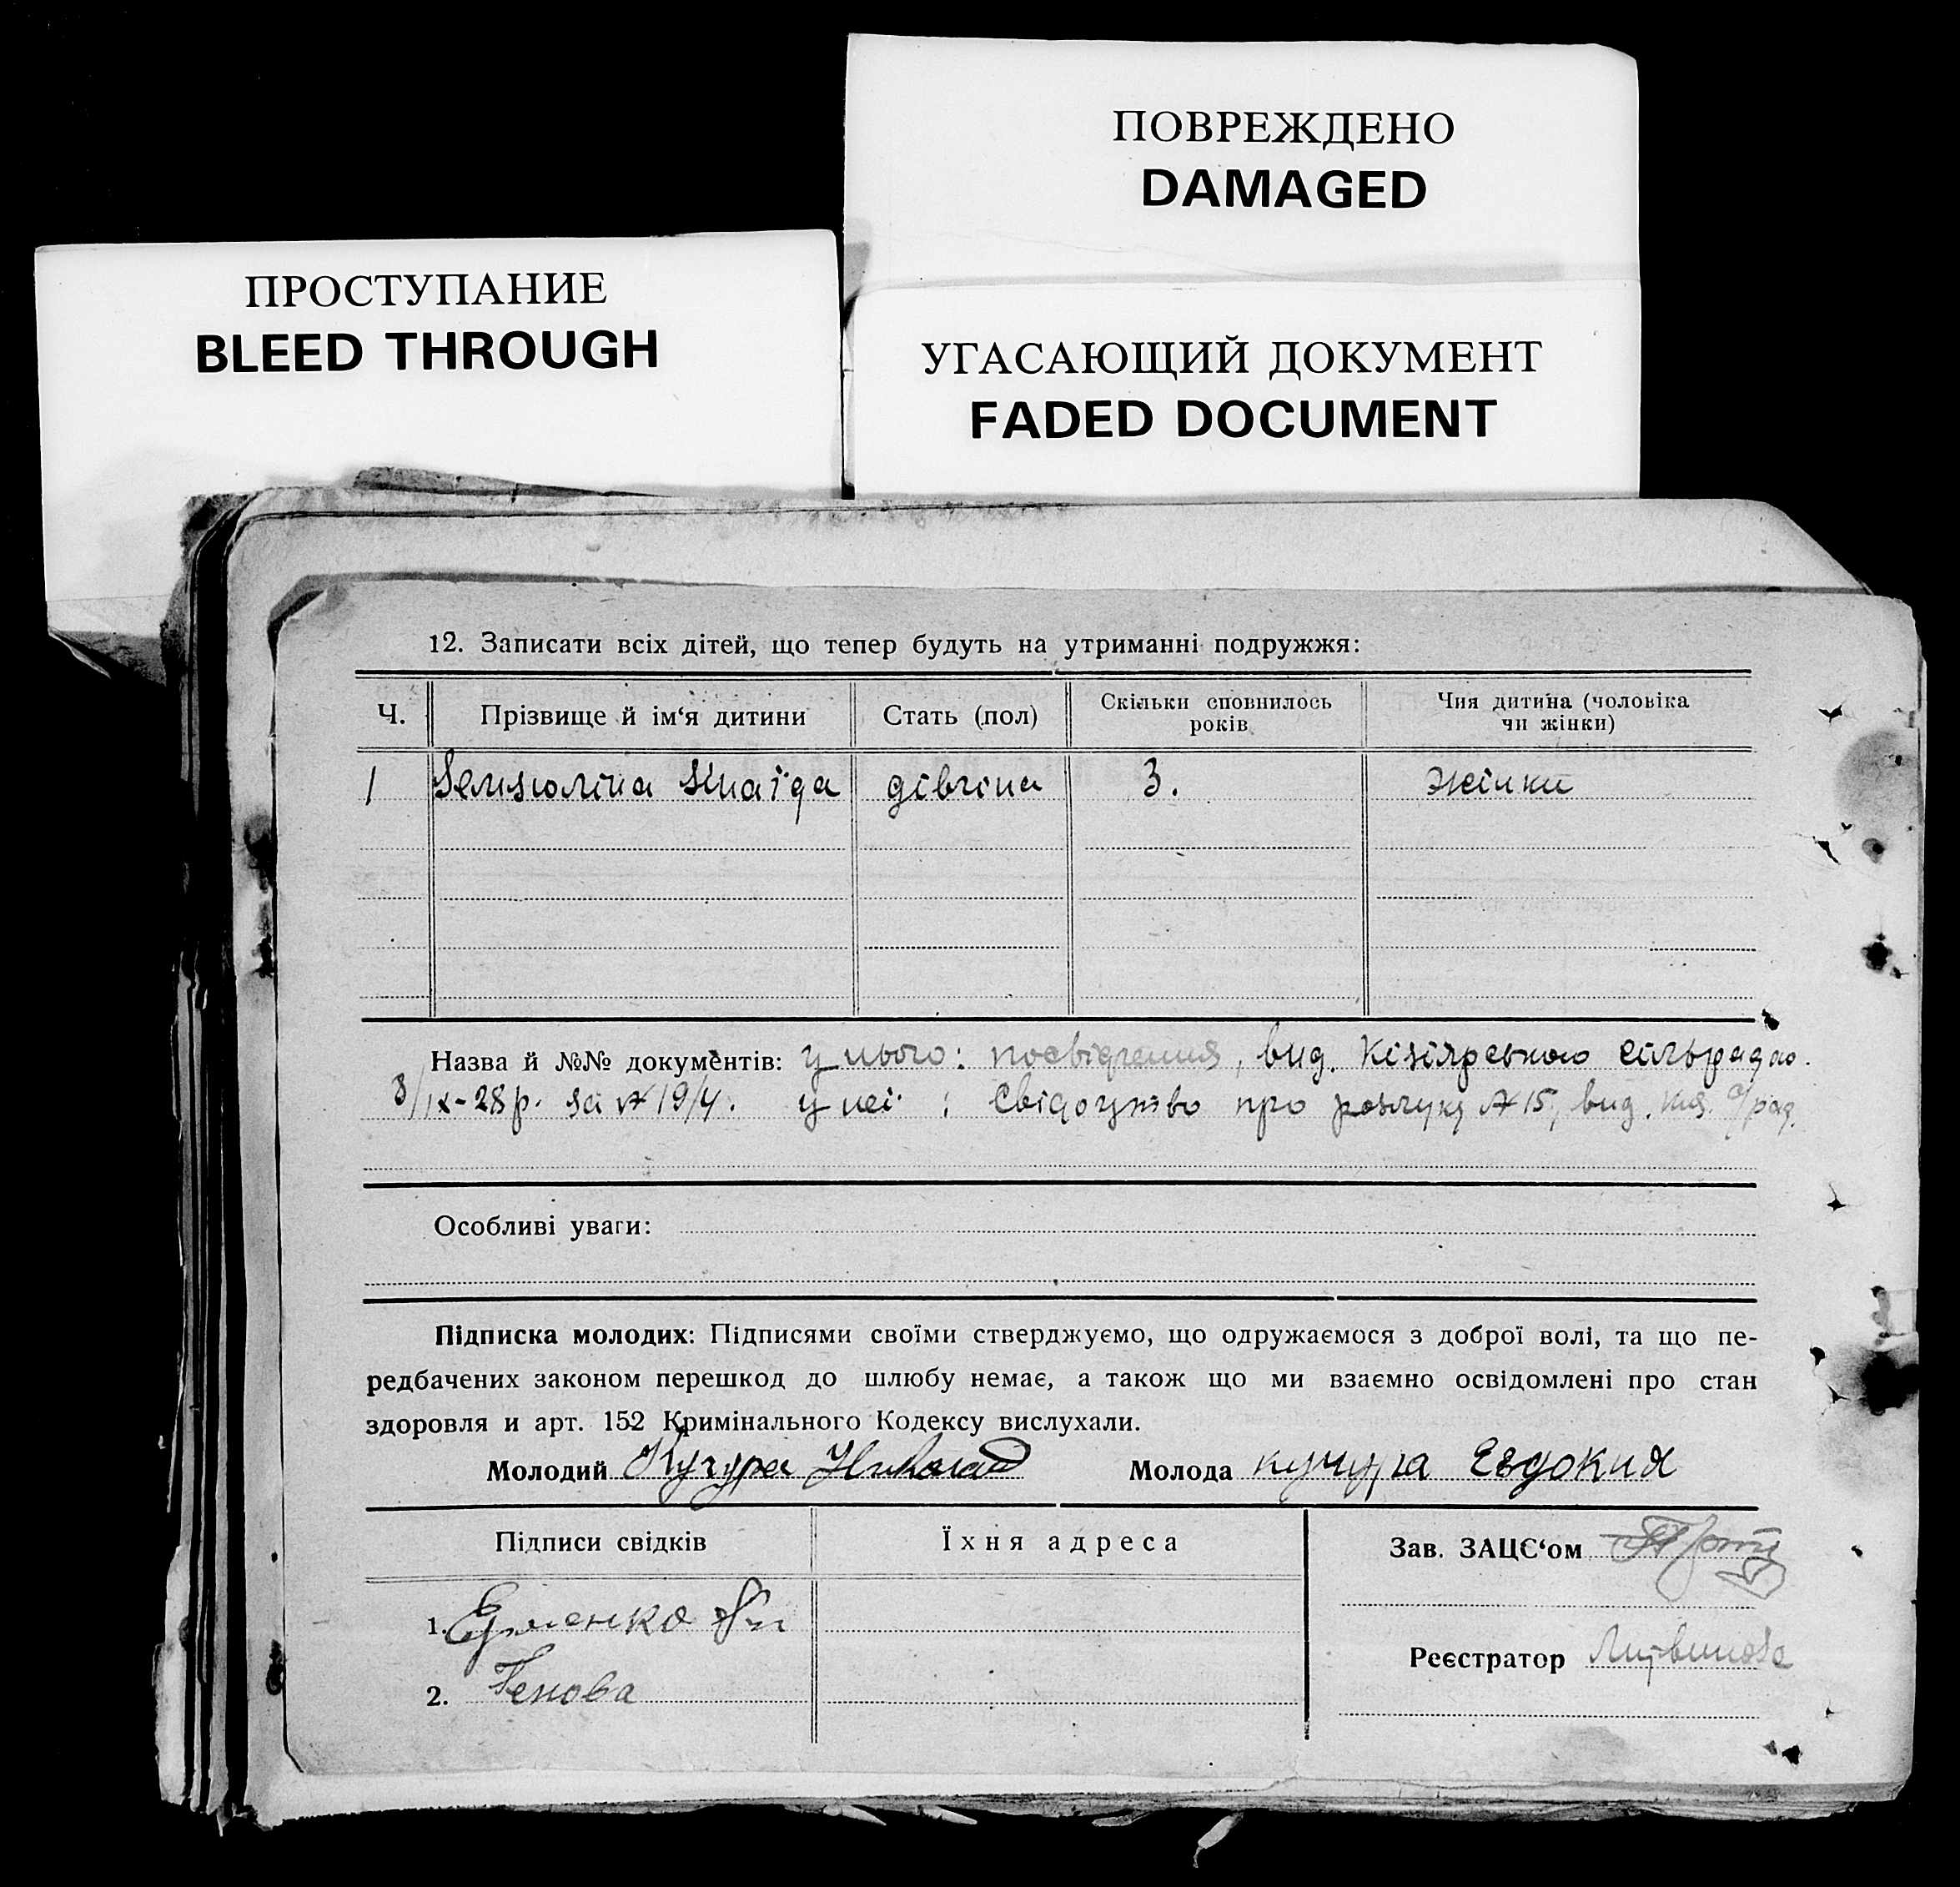 ПОВРЕЖДЕНО
DAMAGED
ПРОСТУПАНИЕ
BLEED THROUGH
УГАСАЮЩИЙ ДОКУМЕНТ
FADED DOCUMENT
12. Записати всіх дітей, що тепер будуть на утриманні подружжя:
Ч. Прізвище й ім‘я дитини Стать (пол) Скільки сповнилось років Чия дитина (чоловіка чи жінки)
1 Зінаїда дівчина 3. жінки
Назва й №№ документів: у нього: посвідчення, вид. Кізіярською сільрадою.
3/IX-28р. за № 19/4. у неї: Свідоцтво про розлуку № 15, вид. Кіз. с/рад.
Особливі уваги:
Підписка молодих: Підписями своїми стверджуємо, що одружаємося з доброї волі, та що пе-
редбачених законом перешкод до шлюбу немає, а також що ми взаємно освідомлені про стан
здоровля и арт. 152 Кримінального Кодексу вислухали.
Молодий Кучура Николай Молода кучура Евдокия
Підписи свідків Їхня адреса Зав. ЗАЦС‘ом
1. Ерменко
Реєстратор Литвинова
2. Генова